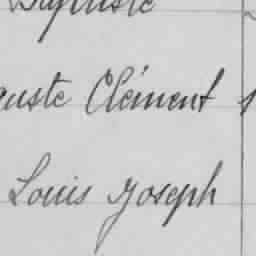 Baptiste
guste Clément
Louis Joseph